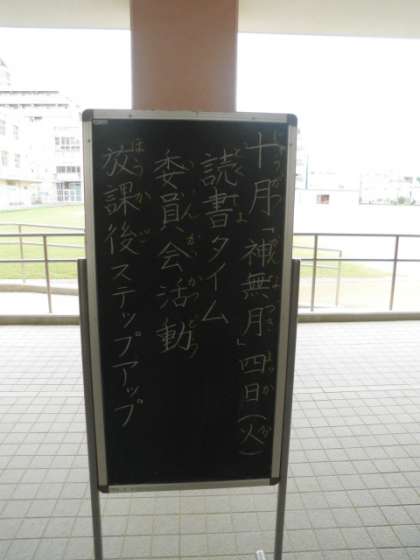 十月「神無月」四日(火)
読書タイム
委員会活動
放課後ステップアップ